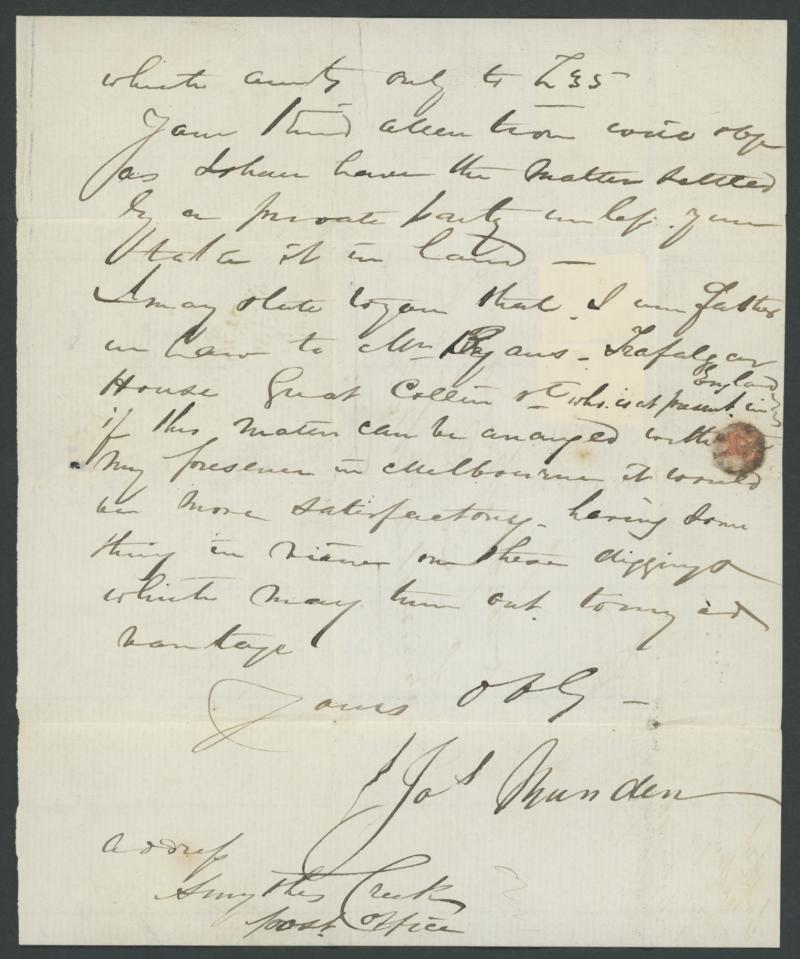 which amts only to £35
Your kind attention will obge
as I shall have the matter settled
by a private party unless you
take it in hand —
I may state to you that I am father
in Law to Mr Evans - Trafalgar
House Great Collin st who is at present in England
if this matter can be arranged with
my presence in Melbourne it would
be more satisfactory - having some
thing in view on these diggings
which may turn out to my ad
vantage
Yours obly —
Jos Munden
address
Smythes Creek
post office